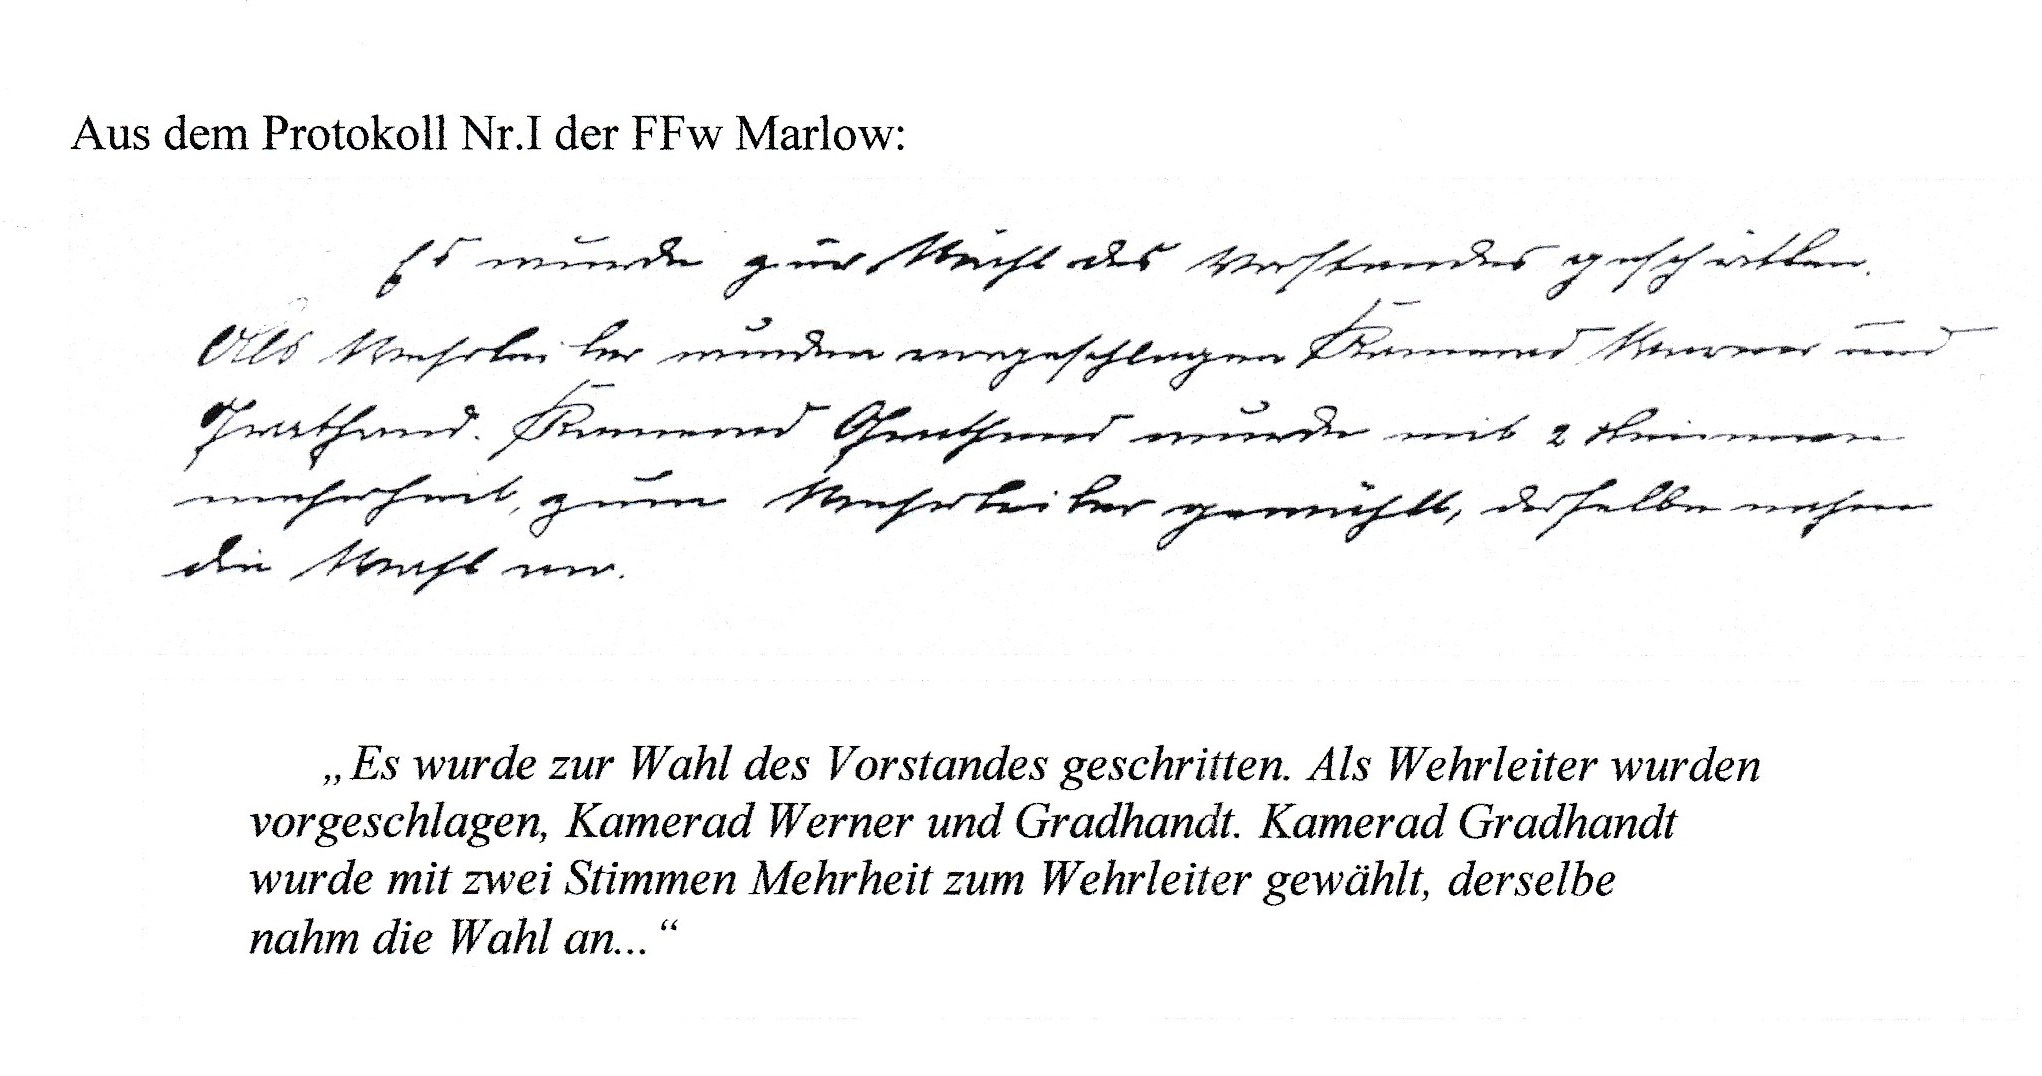 Aus dem Protokoll Nr.I der FFw Marlow:
Es wurde zur Wahl des Vorstandes geschritten.
Als Wehrleiter wurden vorgeschlagen Kamerad Werner und
Kamerad wurde mit 2 Stimmen
mehrheit, zum Wehrleiter gewählt, derselbe nahm
die Wahl an.
„Es wurde zur Wahl des Vorstandes geschritten. Als Wehrleiter wurden
vorgeschlagen, Kamerad Werner und Gradhandt. Kamerad Gradhandt
wurde mit zwei Stimmen Mehrheit zum Wehrleiter gewählt, derselbe
nahm die Wahl an...“